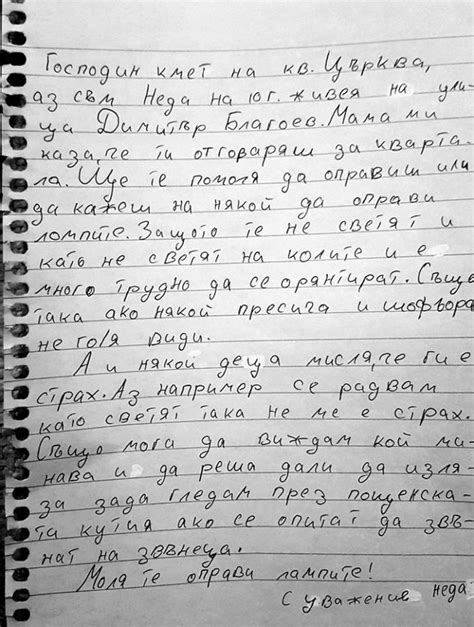 Господин кмет на кв. Църква,
аз съм Неда на 10г. живея на ули-
ца Димитър Благоев. Мама ми
каза, че ти отговаряш за кварта-
ла. Ще те помоля да оправиш или
да кажеш на някой да оправи
ломпите. Защото те не светят и
като не светят на колите и е
много трудно да се орянтират. Също
така ако някой пресича и шофьора
не го/я види.
А и някой деца мисля, че ги е
страх. Аз например се радвам
като светят така не ме е страх.
Също мога да виждам кой ми-
нава и да реша дали да изля-
за зада гледам през пощенска-
та кутия ако се опитат да звъ-
нат на звънеца.
Моля те оправи лампите!
С уважение Неда